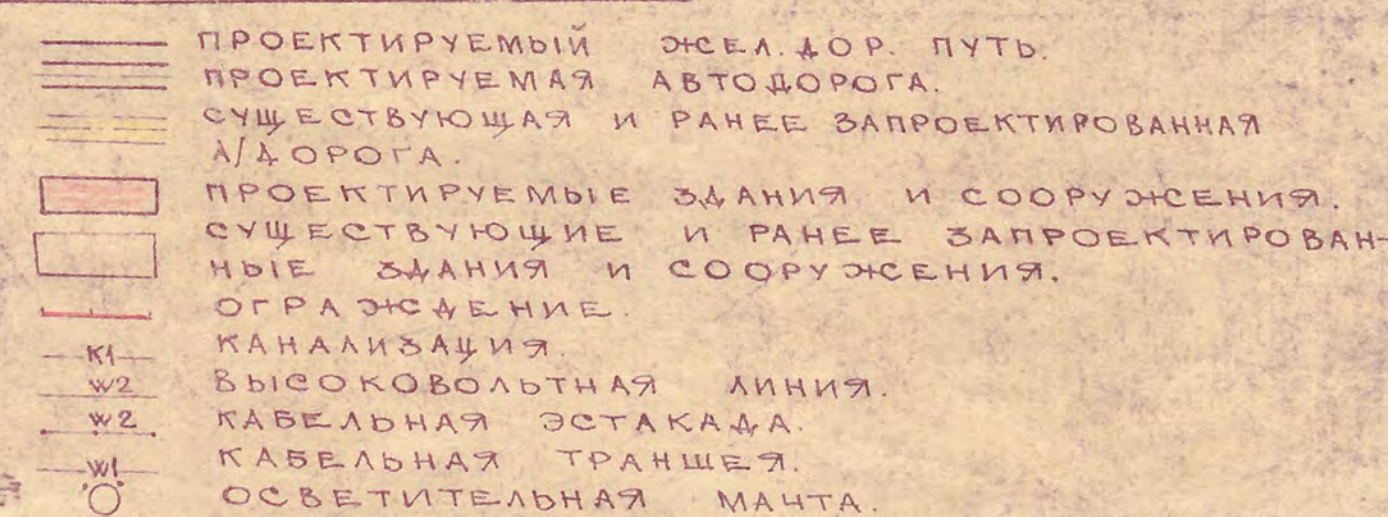 ПРОЕКТИРУЕМЫЙ ЖЕЛ.ДОР. ПУТЬ.
ПРОЕКТИРУЕМАЯ АВТОДОРОГА.
СУЩЕСТВУЮЩАЯ И РАНЕЕ ЗАПРОЕКТИРОВАННАЯ
А/ДОРОГА.
ПРОЕКТИРУЕМЫЕ ЗДАНИЯ И СООРУЖЕНИЯ.
СУЩЕСТВУЮЩИЕ И РАНЕЕ ЗАПРОЕКТИРОВАН-
НЫЕ ЗДАНИЯ И СООРУЖЕНИЯ.
ОГРАЖДЕНИЕ.
К1 КАНАЛИЗАЦИЯ.
W2 ВЫСОКОВОЛЬТНАЯ ЛИНИЯ.
W2 КАБЕЛЬНАЯ ЭСТАКАДА.
W1 КАБЕЛЬНАЯ ТРАНШЕЯ.
ОСВЕТИТЕЛЬНАЯ МАЧТА.